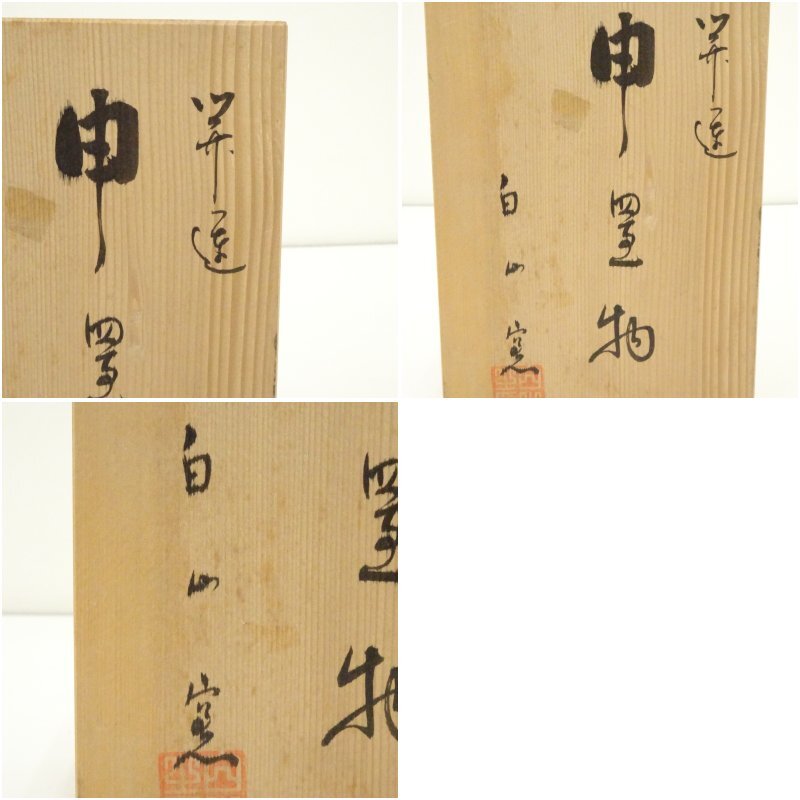 開運
申置
開運
申置物
白山窯
置物
白山窯